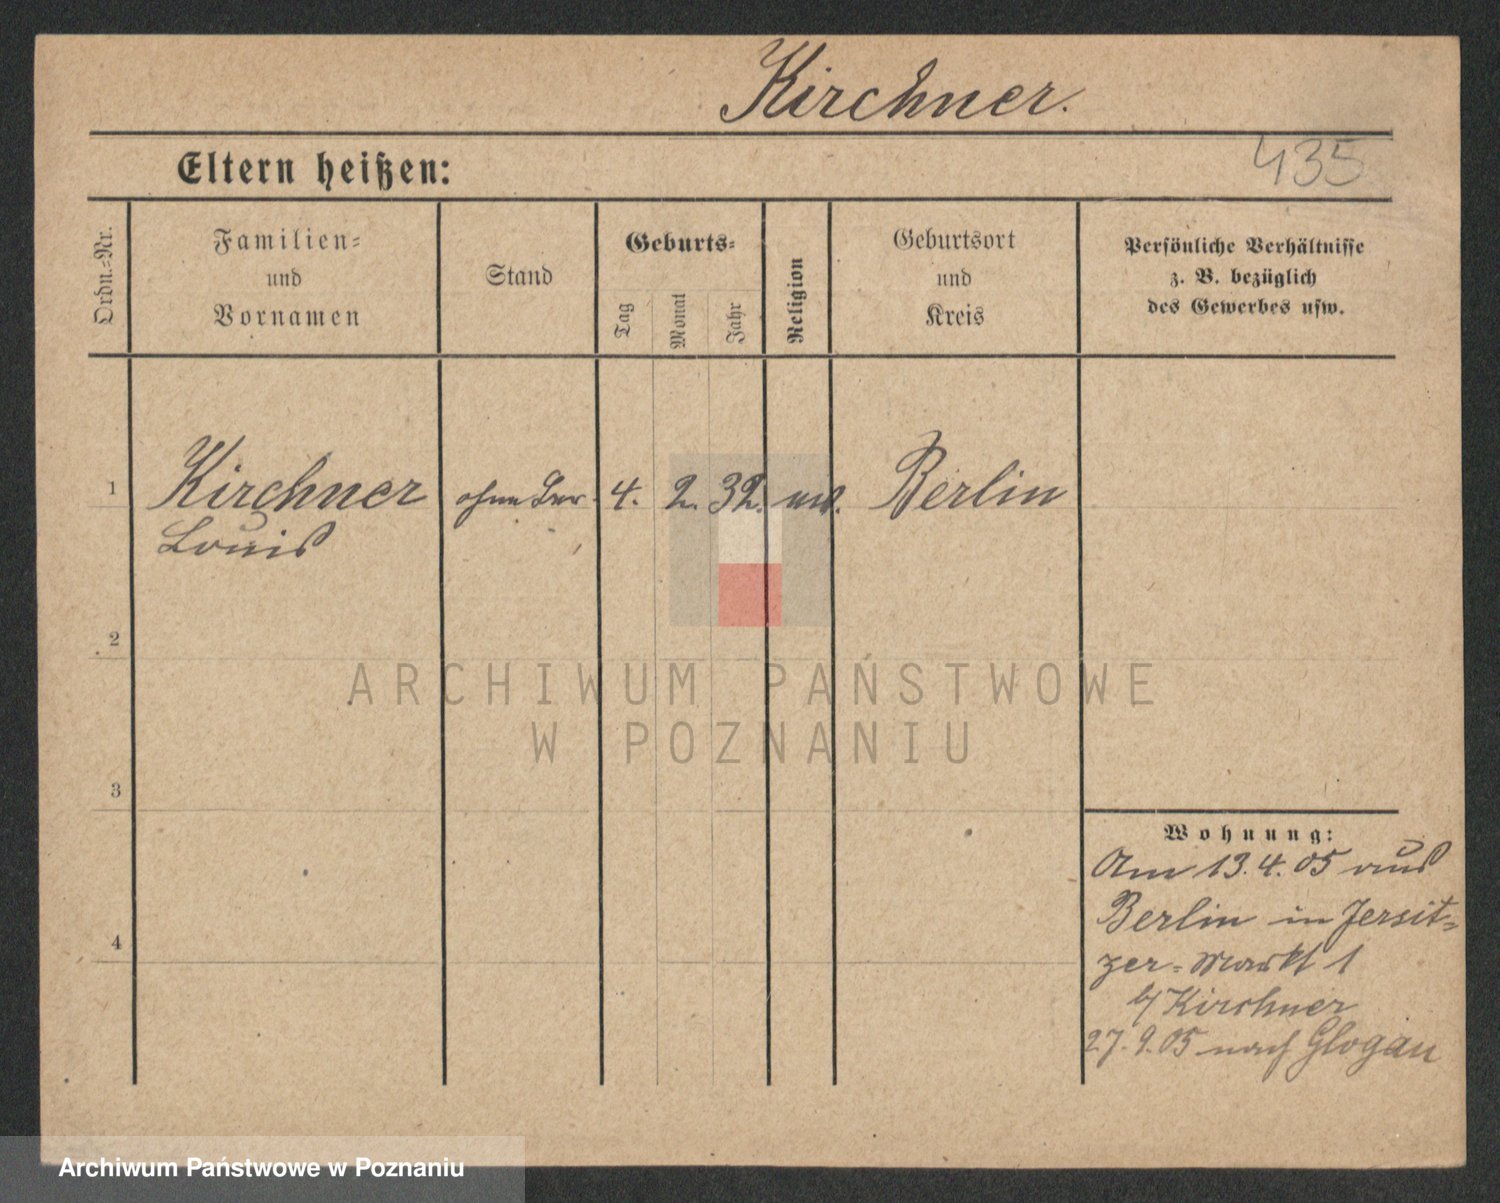 Kirchner.
Eltern heißen:
435
Ordn.-Nr.
Familien-
und
Vornamen
Stand
Geburts-
Tag
Monat
Jahr
Religion
Geburtsort
und
Kreis
Persönliche Verhältnisse
z. B. bezüglich
des Gewerbes usw.
1
Kirchner
Louis
ohne
4. 2. 32.
Berlin
2
ARCHIWUM PAŃSTWOWE
W POZNANIU
3
Wohnung:
Am 13.4.05 aus
Berlin in Jersit-
zer-Markt 1
b/Kirchner
27.9.05 nach Glogau
4
Archiwum Państwowe w Poznaniu